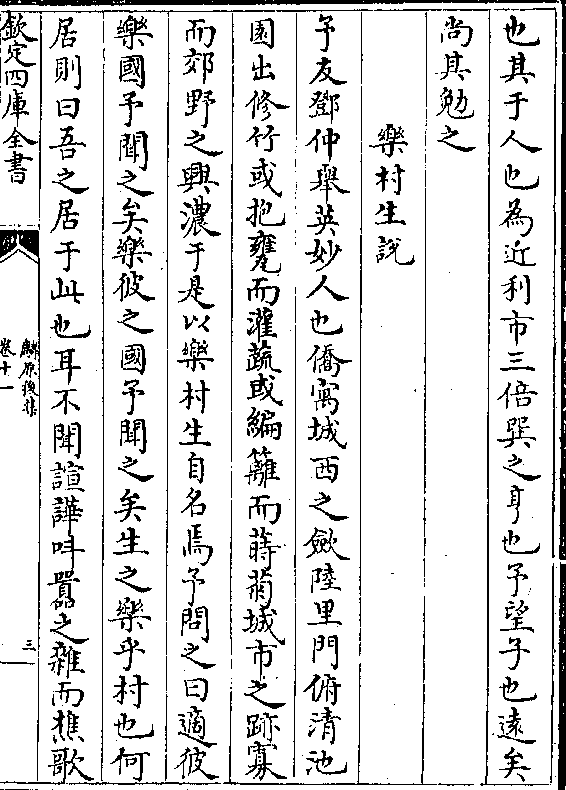 也其于人也為近利市三倍巽之身也予望子也遠矣
尚其勉之
樂村生說
予友鄧仲舉英妙人也僑寓城西之歛陸里門俯清池
園出修竹或抱甕而灌蔬或編籬而蒔菊城市之跡寡
而郊野之興濃于是以樂村生自名焉予問之曰適彼
樂國予聞之矣樂彼之國予聞之矣生之樂乎村也何
居則曰吾之居于此也耳不聞諠譁呌嚻之雜而樵歌
欽定四庫全書
麟原後集
卷十一
三